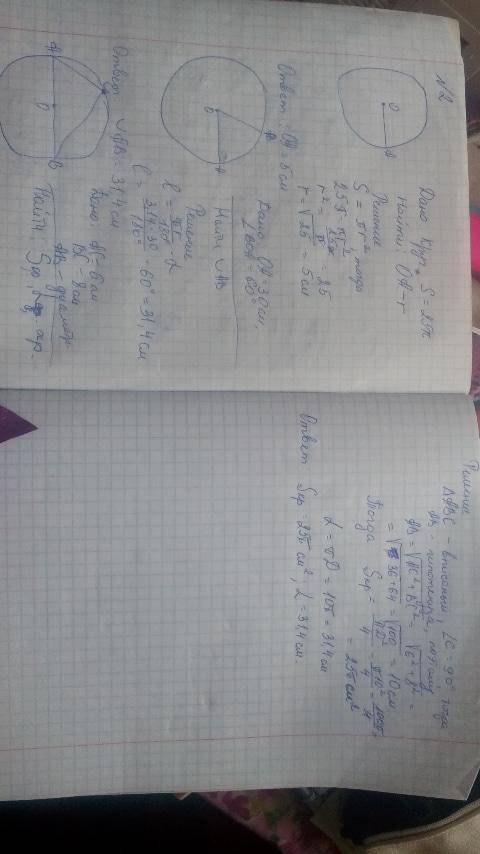 №2
Дано Круг, S = 25π
Найти: OA - r
Решение
S = πr² тогда
25π = πr²
r² = 25π/π = 25
r = √25 = 5 см
Ответ: OA = 5 см
O
A
Дано: OA = 30 см,
∠BOA = 60°
Найти ∪AB
Решение
l = πr/180° · α
l = 3,14 · 30/180° · 60° = 31,4 см
Ответ ∪AB = 31,4 см
O
A
B
Дано: AC - 6 см
BC - 8 см
AB - диаметр
Найти: Sкр, L окр.
A
O
B
Решение
△ABC - вписанный ∠C = 90° тогда
AB - гипотенуза, поэтому
AB = √AC² + BC² = √6² + 8² =
= √36 + 64 = √100 = 10 см
Тогда Sкр = πD²/4 = π10²/4 = 100π/4
= 25π см²
L = πD = 10π = 31,4 см
Ответ Sкр = 25π см²; L = 31,4 см.